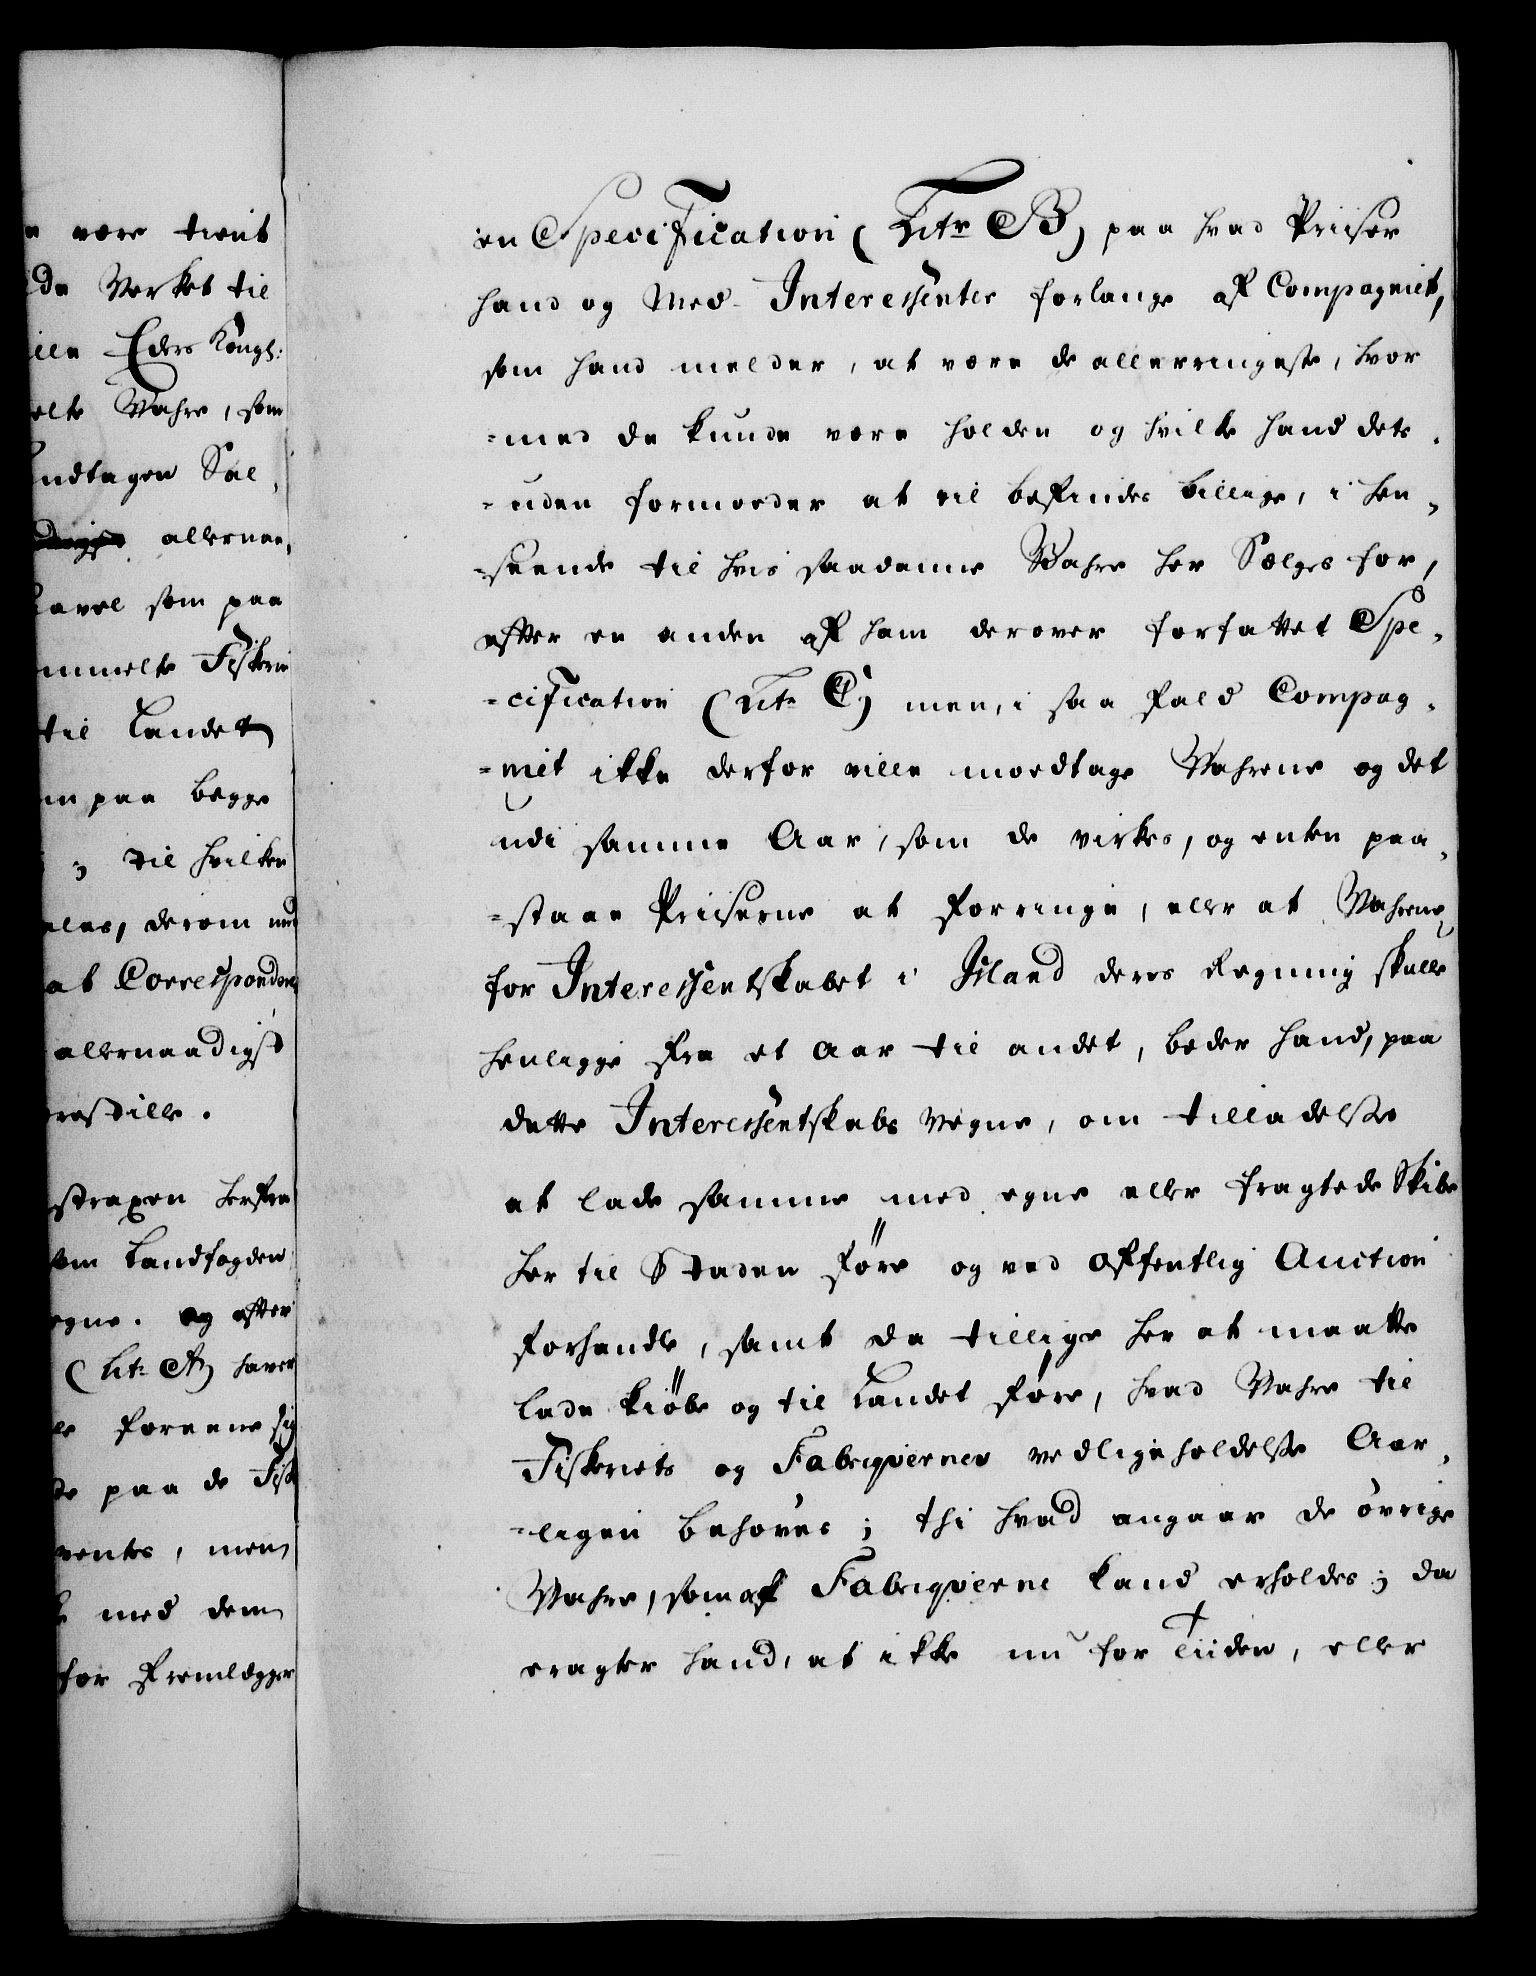 n være tient
de Verket til
ille Eders Kongl:
elte Wahre, som
indtagen Sal,
allernaa,
Lavel som paa
mmelte Fiskerie
til Landet
in paa begge
; til hvilken
eles, derom med
at Correspondere
allernaadigst
restille.
strapen herfra
som Landfogden
egne. og efter
(Litr: A) haver
le foreene sig
te paa de Fisk
ventes, men
med dem
for fremlegger
en Specification (Litr B) paa hvad Priiser
hand og Med-Interessenter forlange af Compagniet,
som hand melder, at være de allerringeste, hvor
=med de kunde være holden og hvilke hand des,
=uden formoeder at vil befindes billige, i hen,
=seende til hvis saadanne Wahre her Sælges for,
efter en anden af ham derover forfattet Spe,
=cification (Litr C) men, i saa fald Compag,
=niet ikke derfor ville modtage Wahrene og det
udi samme Aar, som de virkes, og enten paa,
=staae Priiserne at forringe, eller at Wahrene
for Interessentskabet i Island deres Regning skulle
henligge fra et Aar til andet, beder hand, paa
dette Interessentskabs Vegne, om tilladelse
at lade samme med egne eller fragtede Skibe
her til Staden føre og ved offentlig Auction
forhandle, samt da tillige her at maatte
lade kiøbe og til Landet føre, hvad Wahre til
Fiskeriets og Fabriqvernes vedligeholdelse Aar,
=ligen behøves; thi hvad angaar de øvrige
Wahre, som af Fabriqverne kand erholdes; da
eragter hand, at ikke nu for Tiiden, eller